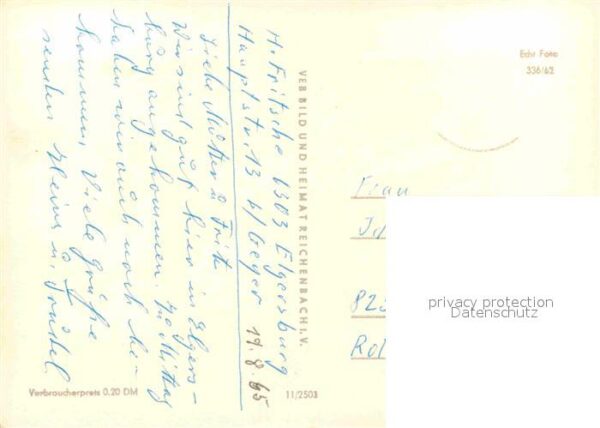 H. Fritsche 6303 Elgersburg
Hauptstr. 13 b/ Geyer 19.8.65
Liebe Mutter u. Fritz
Wir sind gut hier in Elgers-
burg angekommen. Zu Mittag
haben wir auch noch be-
kommen. Viele Grüße
senden Heinz u. Trudel.
VEB BILD UND HEIMAT REICHENBACH I. V.
Verbraucherpreis 0,20 DM
11/2503
Echt Foto
336/62
Frau
825
privacy protection
Datenschutz